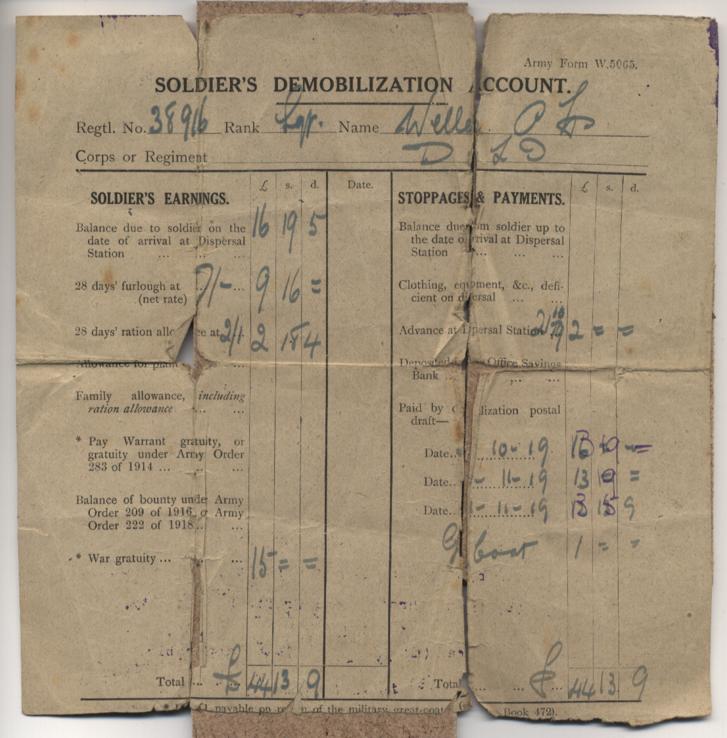 Army Form W.5065.
SOLDIER'S DEMOBILIZATION ACCOUNT.
Regtl. No. 38916 Rank Name P
Corps or Regiment D L D
£ s. d. Date. £ s. d.
SOLDIER'S EARNINGS.
Balance due to soldier on the
date of arrival at Dispersal
Station ... ... ... 16 19 5
28 days' furlough at 7/-
(net rate) 9 16 =
28 days' ration at 2/1 2 18 4
Family allowance, including
ration allowance ... ...
* Pay Warrant gratuity, or
gratuity under Army Order
283 of 1914 ... ... ...
Balance of bounty under Army
Order 209 of 1916 Army
Order 222 of 1918 ... ...
* War gratuity ... ... ... 15 = =
Total ... £ 44 13 9
STOPPAGES & PAYMENTS.
Balance due soldier up to
the date at Dispersal
Station ... ... ...
Clothing, &c., defi-
cient on ... ...
Advance at Station 2 = =
Office Savings
Bank ... ...
Paid by postal
draft—
Date.. 10-19 =
Date.. 11-19 13 9 =
Date.. 11-19 9
boat 1 = =
Total ... £ 44 13 9
payable on of the military great-coat Book 472).